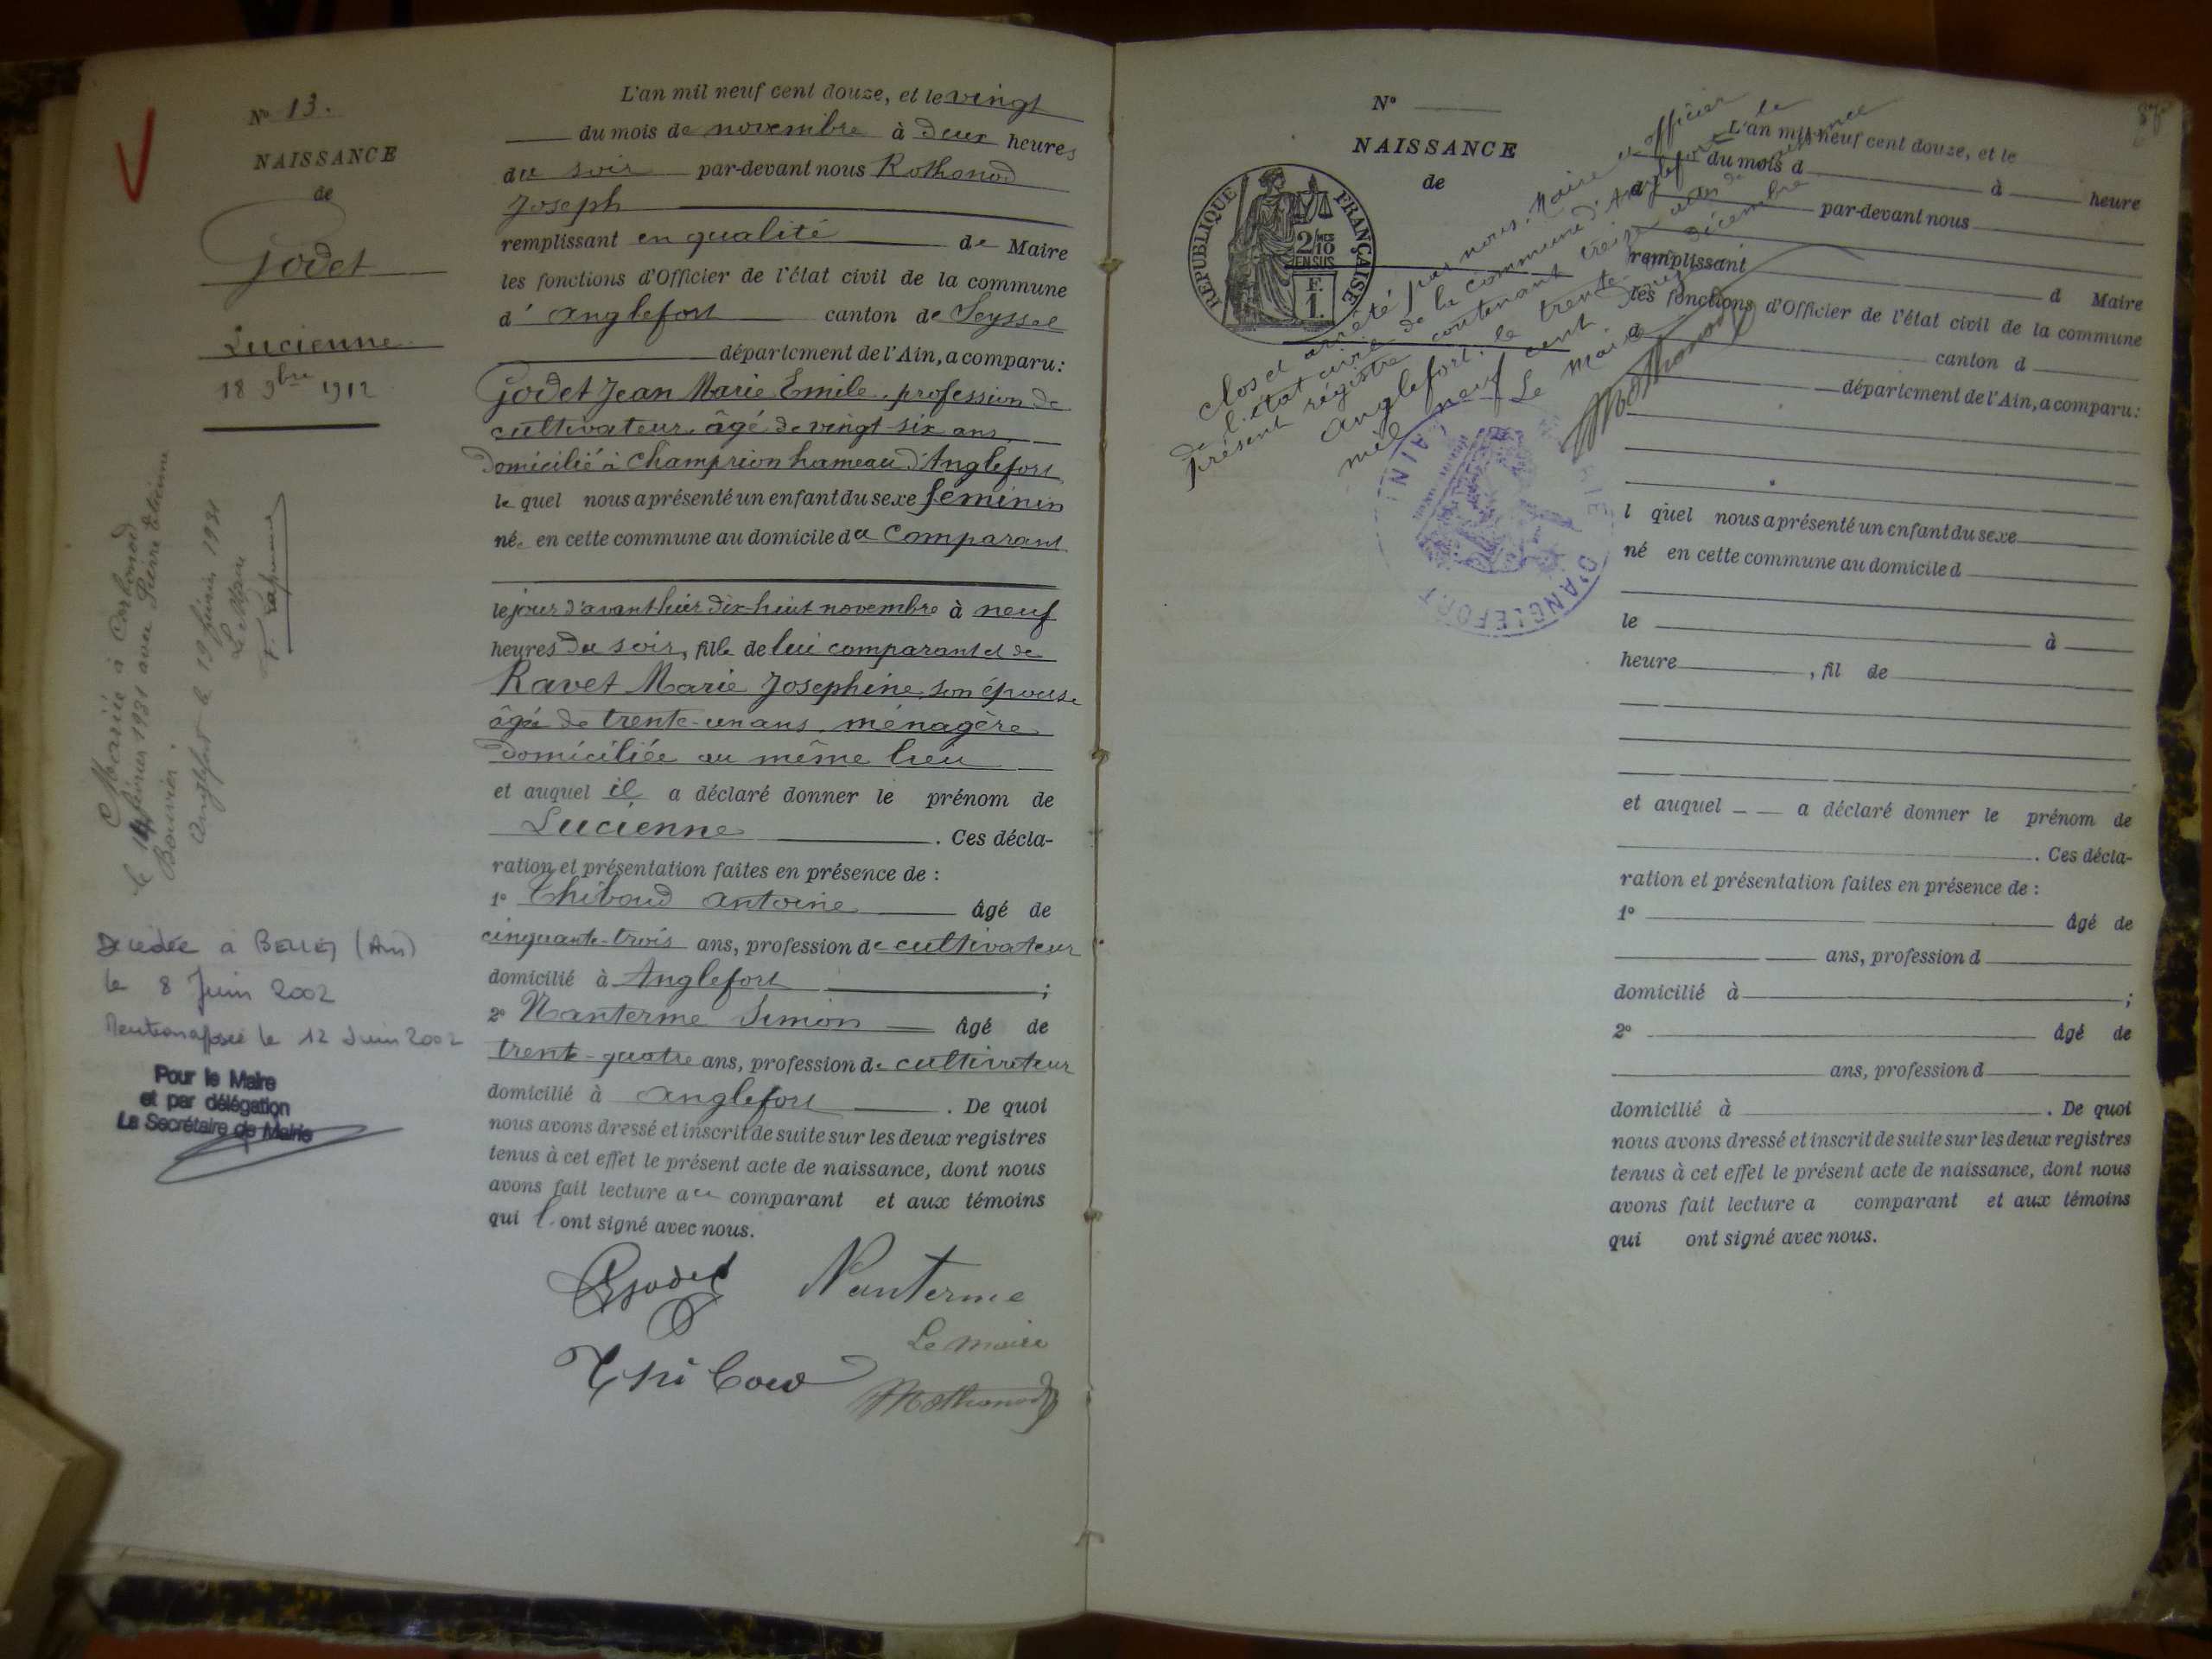 N° 13.
NAISSANCE
de
Godet
Lucienne
18 9bre 1912
Mariée à Corbonod
le 14 février 1931 avec Pierre Etienne
Bouvier.
Anglefort le 19 février 1931
Le Maire
Décédée à BELLEY (Ain)
le 8 Juin 2002
Mention apposée le 12 Juin 2002
Pour le Maire
et par délégation
La Secrétaire de Mairie
L'an mil neuf cent douze, et le vingt
du mois de novembre à deux heures
du soir par-devant nous Rothonod
Joseph
remplissant en qualité de Maire
les fonctions d'Officier de l'état civil de la commune
d' Anglefort canton de Seyssel
département de l'Ain, a comparu:
Godet Jean Marie Emile, profession de
cultivateur, âgé de vingt-six ans,
domicilié à Champrion hameau d'Anglefort
le quel nous a présenté un enfant du sexe féminin
née en cette commune au domicile du Comparant
le jour d'avant hier dix-huit novembre à neuf
heures du soir, fille de lui comparant et de
Ravet Marie Josephine, son épouse
âgée de trente-un ans, ménagère
domiciliée au même lieu
et auquel il a déclaré donner le prénom de
Lucienne. Ces décla-
ration et présentation faites en présence de :
1° Thiboud Antoine âgé de
cinquante-trois ans, profession de cultivateur
domicilié à Anglefort ;
2° Nanterme Simon âgé de
trente-quatre ans, profession de cultivateur
domicilié à Anglefort. De quoi
nous avons dressé et inscrit de suite sur les deux registres
tenus à cet effet le présent acte de naissance, dont nous
avons fait lecture au comparant et aux témoins
qui l'ont signé avec nous.
Godet Nanterme
Le maire
Thiboud Rothonod
N°
NAISSANCE
de
RÉPUBLIQUE FRANÇAISE
2/10 MES
EN SUS
F.
1.
Clos et arrêté par nous, Maire et officier
de l'état civil de la commune d'Anglefort, le
présent registre contenant treize actes de naissance
Anglefort, le trente un décembre
mil neuf cent douze
Le Maire
Rothonod
MAIRIE D'ANGLEFORT
(AIN)
L'an mil neuf cent douze, et le
du mois d à heure
d par-devant nous
remplissant d Maire
les fonctions d'Officier de l'état civil de la commune
d canton d
département de l'Ain, a comparu:
l quel nous a présenté un enfant du sexe
né en cette commune au domicile d
le à
heure , fil de
et auquel a déclaré donner le prénom de
. Ces décla-
ration et présentation faites en présence de :
1° âgé de
ans, profession d
domicilié à ;
2° âgé de
ans, profession d
domicilié à . De quoi
nous avons dressé et inscrit de suite sur les deux registres
tenus à cet effet le présent acte de naissance, dont nous
avons fait lecture a comparant et aux témoins
qui ont signé avec nous.